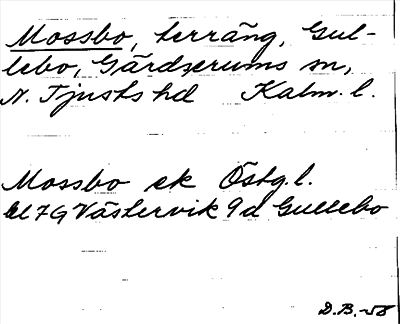 Mossbo, terräng, Gul-
lebo, Gärdserums sn,
N. Tjusts hd Kalm. l.
Mossbo ek Östg. l.
7G Västervik 9d Gullebo
D.B. -58